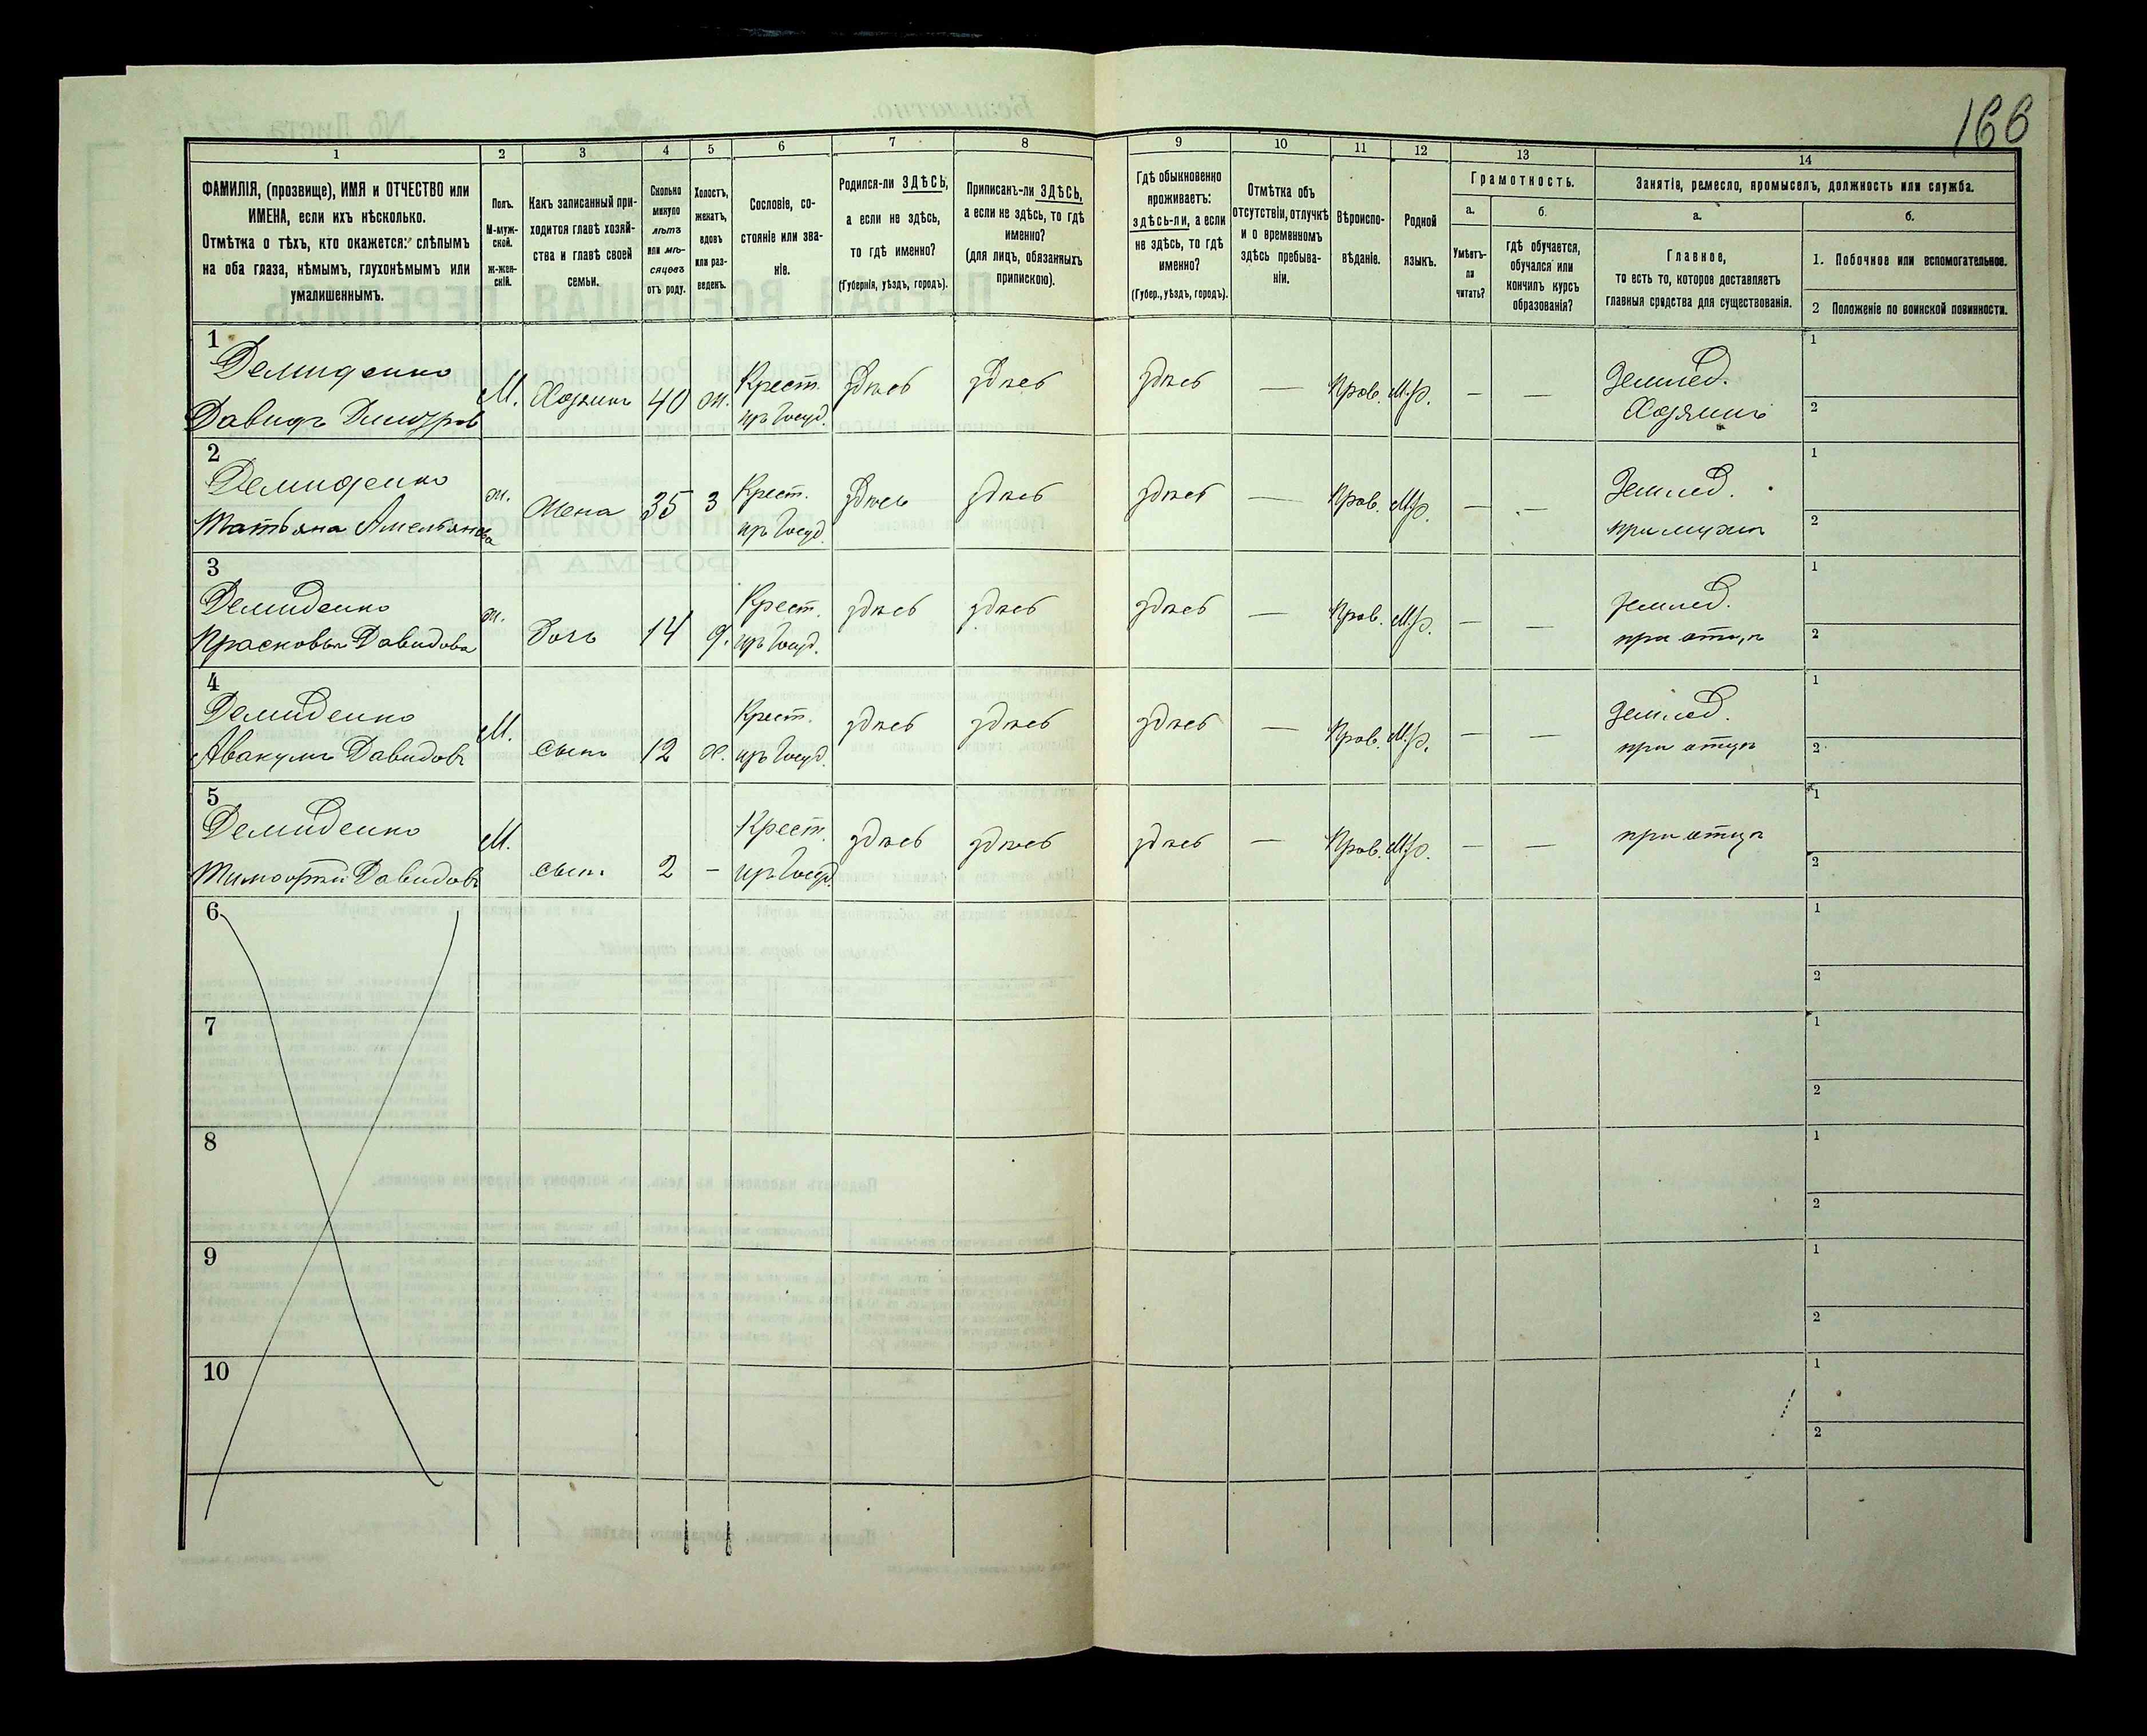 166
1
2
3
4
5
6
7
8
9
10
11
12
13
14
ФАМИЛІЯ, (прозвище), ИМЯ и ОТЧЕСТВО или
ИМЕНА, если ихъ нѣсколько.
Отмѣтка о тѣхъ, кто окажется: слѣпымъ
на оба глаза, нѣмымъ, глухонѣмымъ или
умалишеннымъ.
Полъ.
М-муж-
ской.
ж-жен-
скій.
Какъ записанный при-
ходится главѣ хозяй-
ства и главѣ своей
семьи.
Сколько
минуло
лѣтъ
или мѣ-
сяцевъ
отъ роду.
Холостъ,
женатъ,
вдовъ
или раз-
веденъ.
Сословіе, со-
стояніе или зва-
ніе.
Родился-ли ЗДѢСЬ,
а если не здѣсь,
то гдѣ именно?
(Губернія, уѣздъ, городъ).
Приписанъ-ли ЗДѢСЬ,
а если не здѣсь, то гдѣ
именно?
(для лицъ, обязанныхъ
припискою).
Гдѣ обыкновенно
проживаетъ:
здѣсь-ли, а если
не здѣсь, то гдѣ
именно?
(Губер., уѣздъ, городъ).
Отмѣтка объ
отсутствіи, отлучкѣ
и о временномъ
здѣсь пребыва-
ніи.
Вѣроиспо-
вѣданіе.
Родной
языкъ.
Грамотность.
а.
Умѣетъ-
ли
читать?
б.
гдѣ обучается,
обучался или
кончилъ курсъ
образованія?
Занятіе, ремесло, промыселъ, должность или служба.
а.
Главное,
то есть то, которое доставляетъ
главныя средства для существованія.
б.
1. Побочное или вспомогательное.
2 Положеніе по воинской повинности.
1
Демиденко М. Хозяинъ 40 ж. Крест. здѣсь здѣсь здѣсь — Прав. М.р. — — Землед. 1
Давидъ Дмитровъ изъ Госуд. Хозяинъ 2
2
Демиденко ж. Жена 35 З Крест. здѣсь здѣсь здѣсь — Прав. М.р. — — Землед. 1
Татьяна Амельянова изъ Госуд. при мужѣ 2
3
Демиденко ж. Дочь 14 д. Крест. здѣсь здѣсь здѣсь — Прав. М.р. — — землед. 1
Прасковья Давидова изъ Госуд. при отцѣ 2
4
Демиденко М. сынъ 12 х. Крест. здѣсь здѣсь здѣсь — Прав. М.р. — — Землед. 1
Авакумъ Давидовъ изъ Госуд. при отцѣ 2
5
Демиденко М. сынъ 2 — Крест. здѣсь здѣсь здѣсь — Прав. М.р. — — при отцѣ 1
Тимофѣй Давидовъ изъ Госуд. 2
6 1
2
7 1
2
8 1
2
9 1
2
10 1
2